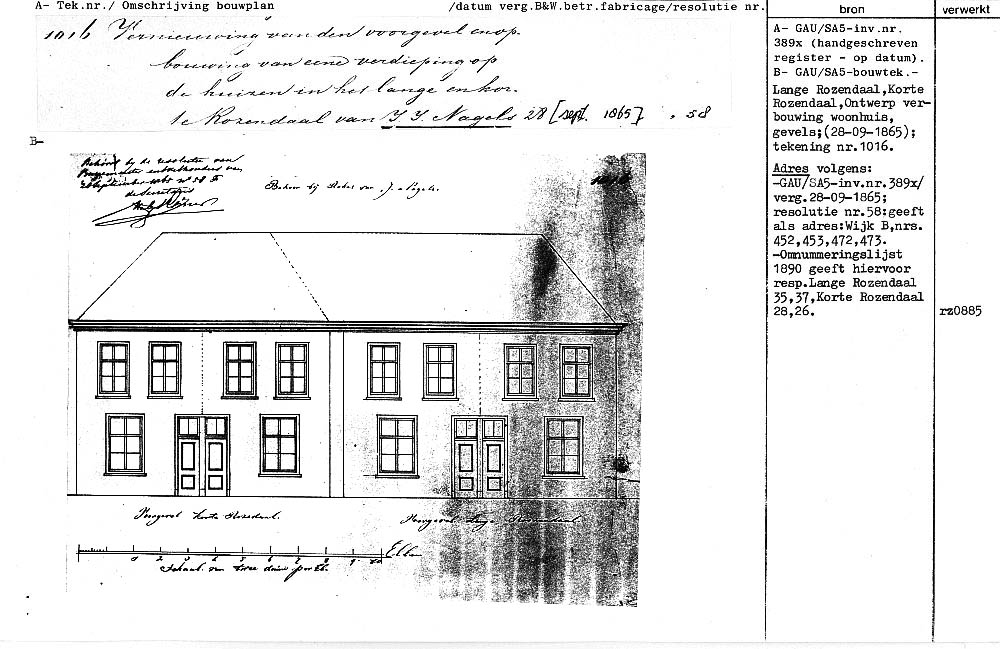 A- Tek.nr./ Omschrijving bouwplan /datum verg.B&W.betr.fabricage/resolutie nr.
bron
verwerkt
1016 Vernieuwing van den voorgevel en op-
bouwing van eene verdieping op
de huizen in het lange en kor-
te Rozendaal van J J. Nagels 28 [sept. 1865] . 58
B-
Behoort bij de resolutie van
Burgemeester en Wethouders van
28 September 1865 No 58 F
de Secretaris
Behoor bij Rekes van J. Nagels.
1016
Voorgevel Korte Rosendaal.
Voorgevel Lange Rosendaal
1 2 3 4 5 6 7 8 9 10 Ellen
Schaal van twee duim per El.
A- GAU/SA5-inv.nr.
389x (handgeschreven
register - op datum).
B- GAU/SA5-bouwtek.-
Lange Rozendaal,Korte
Rozendaal,Ontwerp ver-
bouwing woonhuis,
gevels;(28-09-1865);
tekening nr.1016.
Adres volgens:
-GAU/SA5-inv.nr.389x/
verg.28-09-1865;
resolutie nr.58:geeft
als adres:Wijk B,nrs.
452,453,472,473.
-Omnummeringslijst
1890 geeft hiervoor
resp.Lange Rozendaal
35,37,Korte Rozendaal
28,26.
rz0885